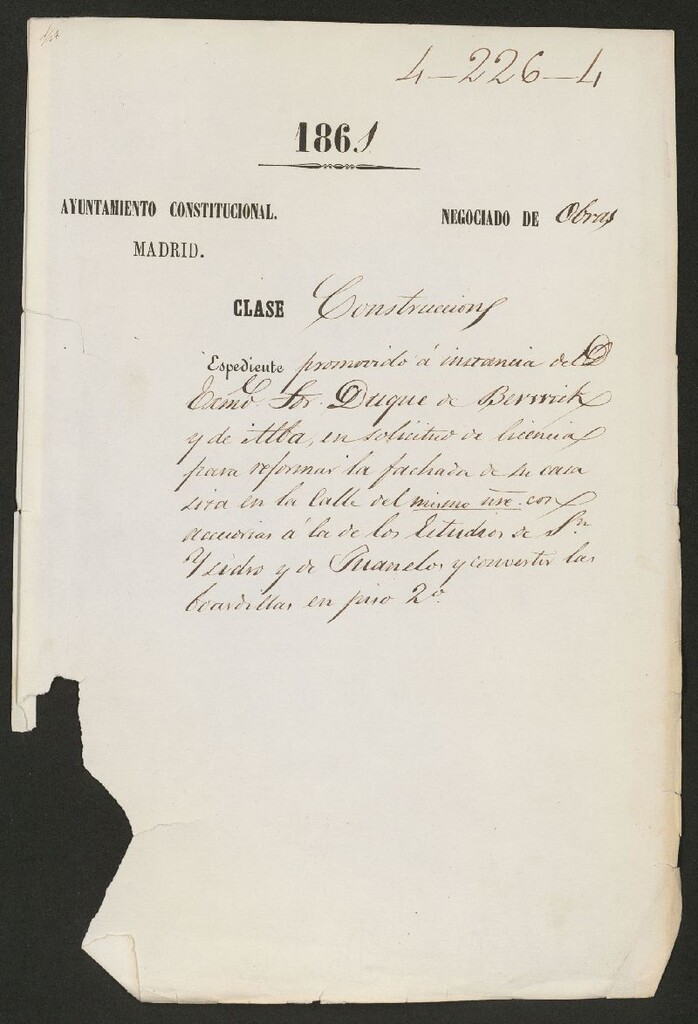 4-226-4
1861
AYUNTAMIENTO CONSTITUCIONAL.
MADRID.
NEGOCIADO DE Obras
CLASE Construccion
Espediente promovido á instancia del
Excmo. Sor. Duque de Berwick
y de Alba, en solicitud de licencia
para reformar la fachada de su casa
sita en la Calle del mismo nre. con
accesorias á la de los Estudios de Sn.
Ysidro y de Juanelo, y convertir las
boardillas en piso 2º